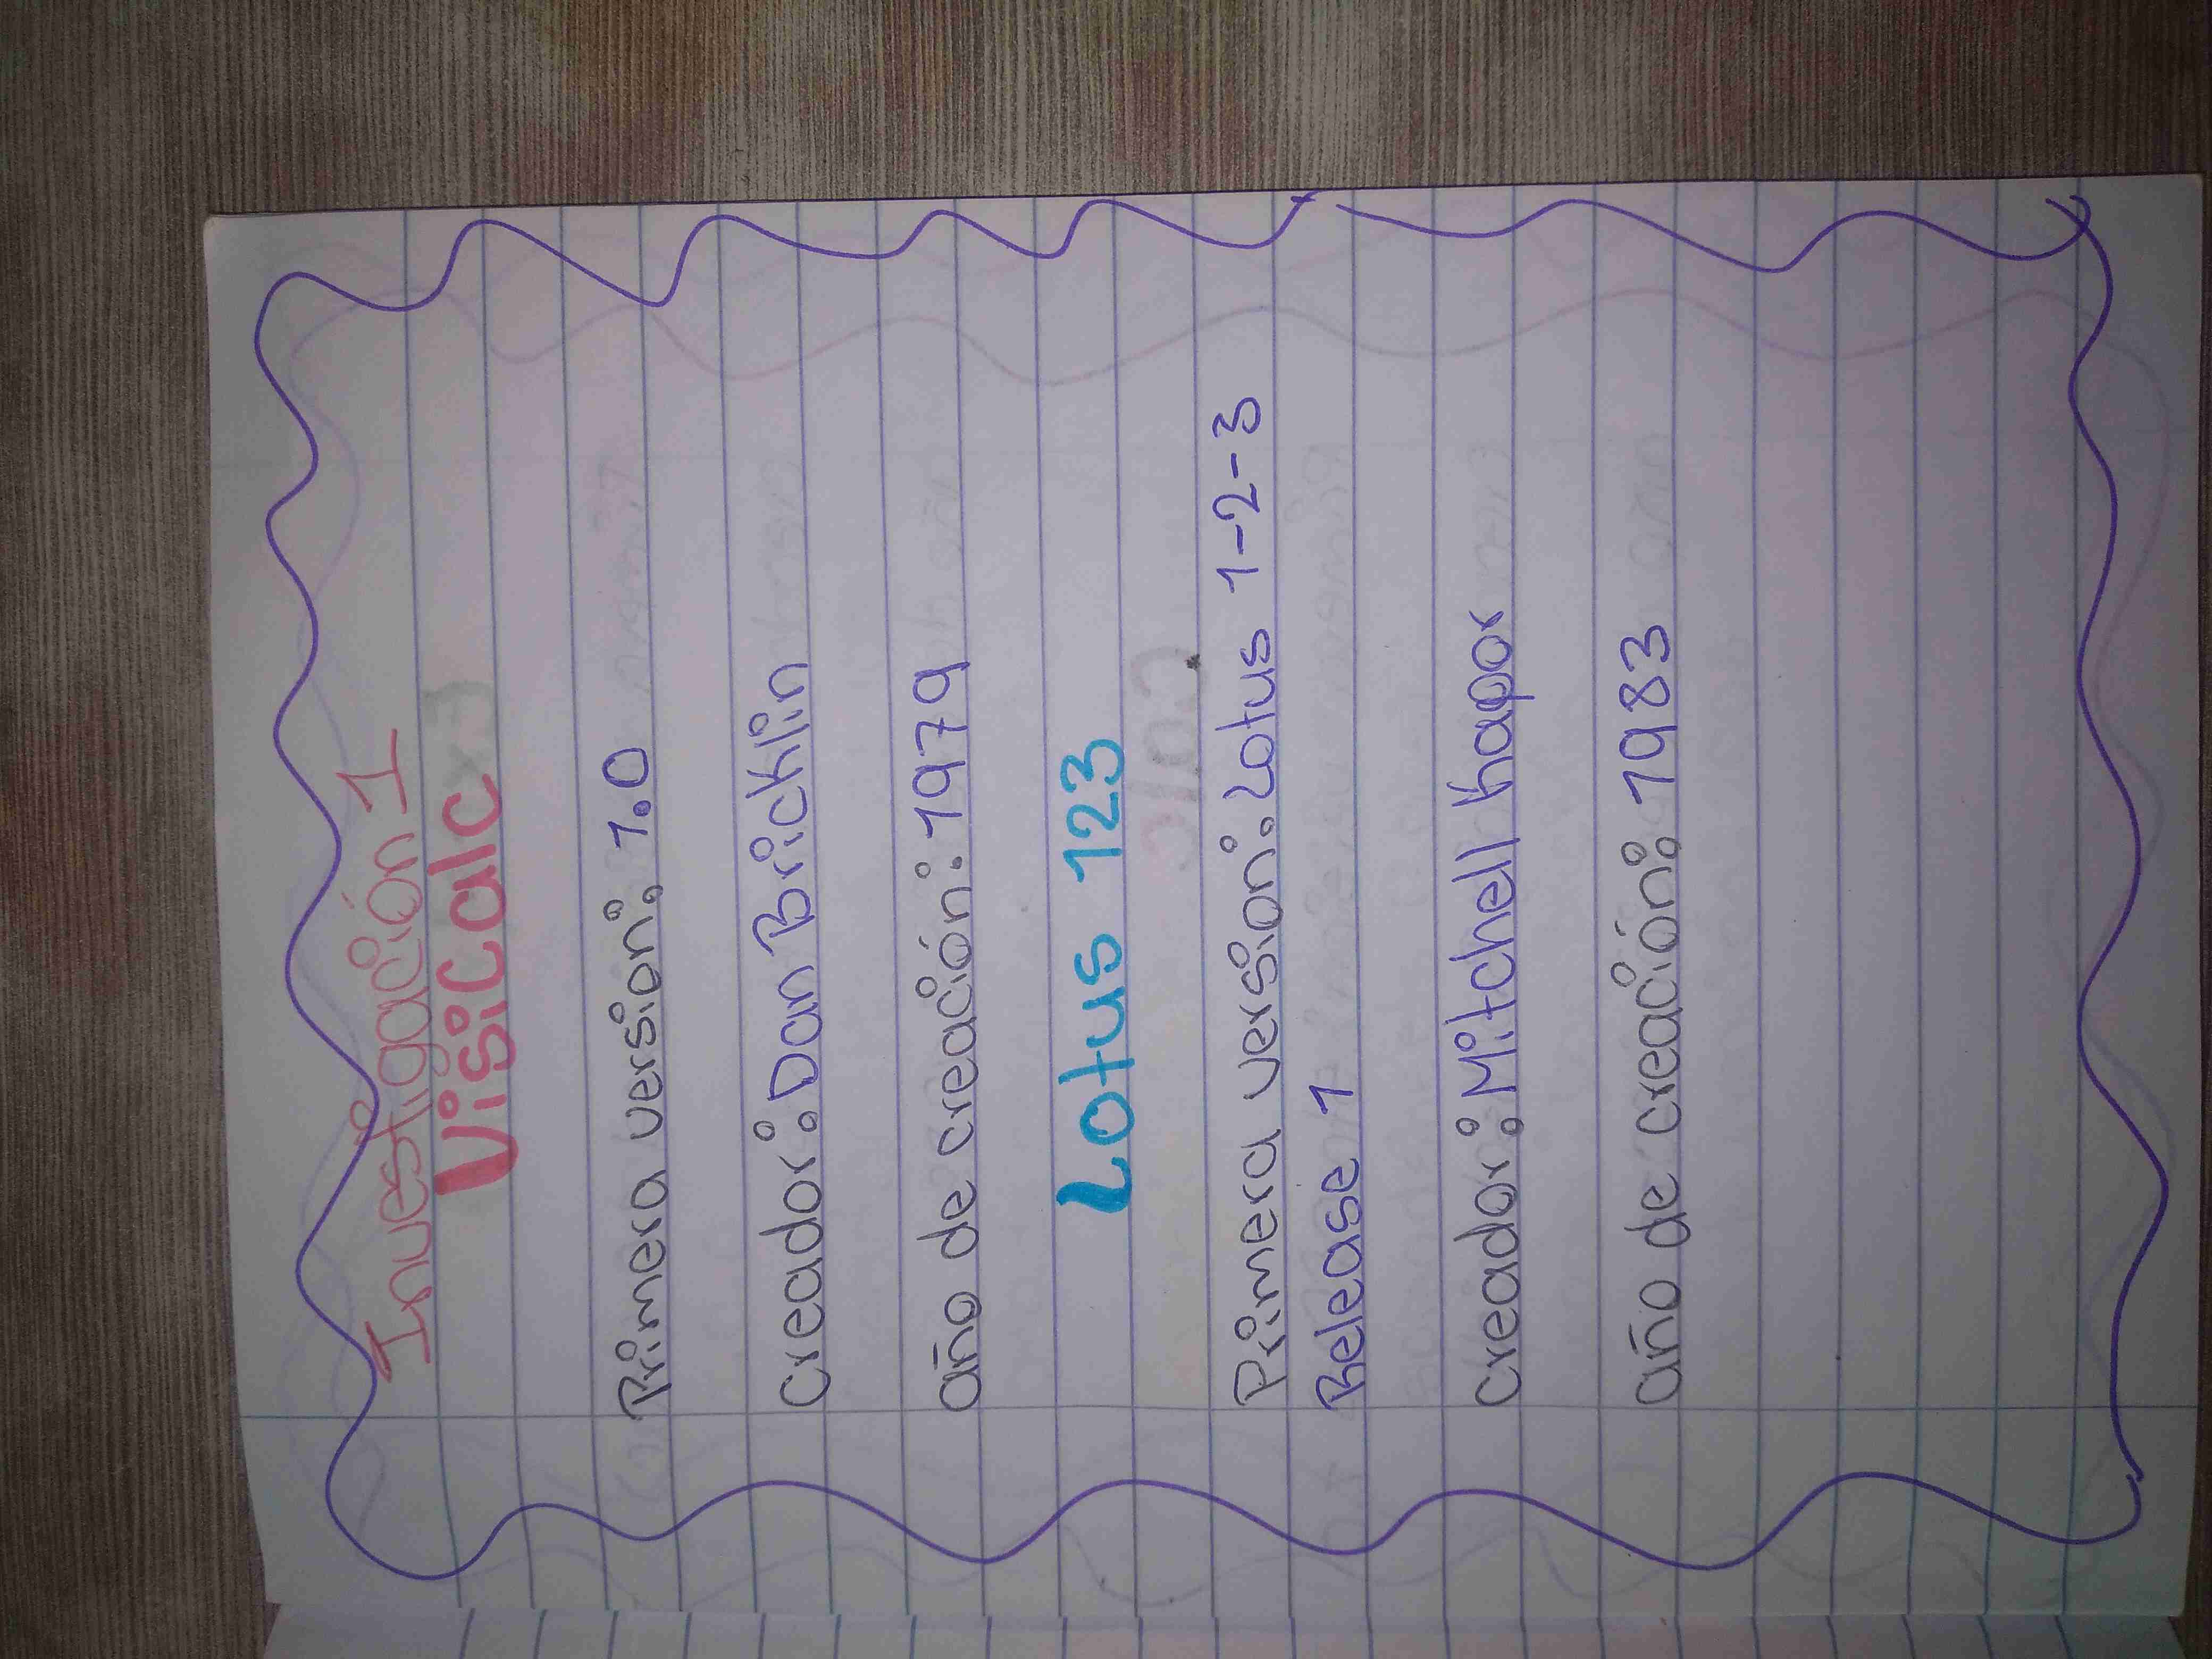 Investigación 1
Visicalc
Primera version: 1.0
Creador: Dan Bricklin
año de creación: 1979
Lotus 123
Primera version: Lotus 1-2-3
Release 1
Creador: Mitchell Kapor
año de creación: 1983